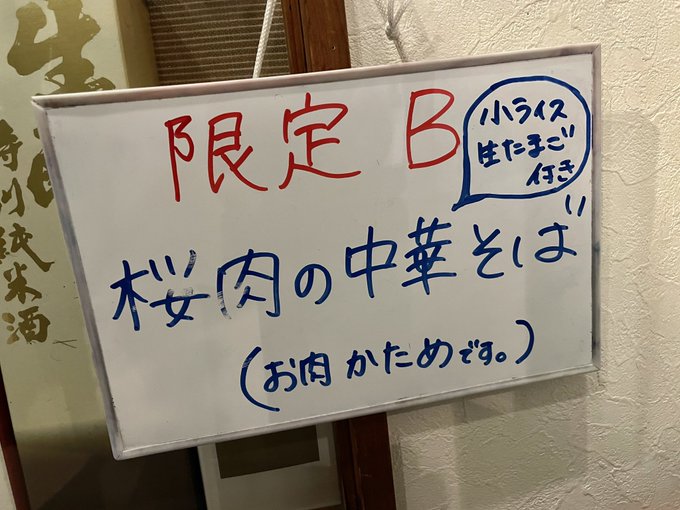 限定 B
小ライス
生たまご
付き
桜肉の中華そば
(お肉かためです。)
特別純米酒